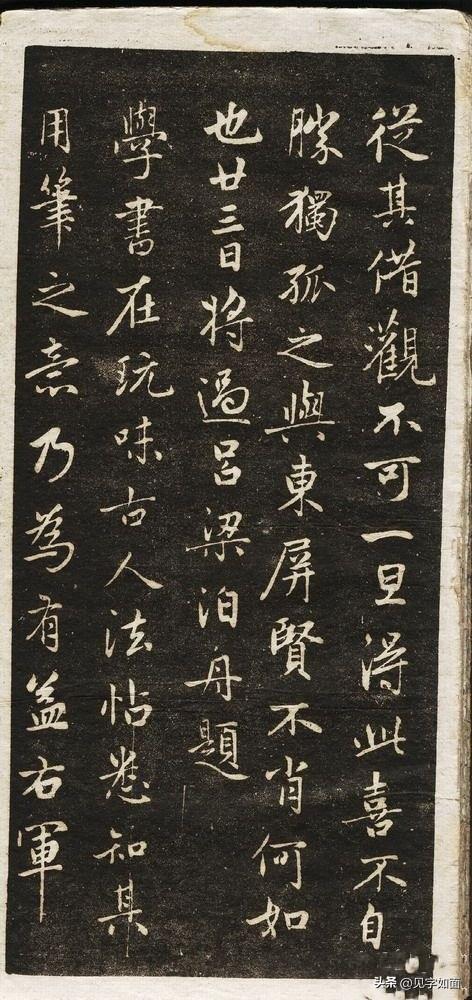 從其借觀不可一旦得此喜不自
勝獨孤之與東屏賢不肖何如
也廿三日將過呂梁泊舟題
學書在玩味古人法帖悉知其
用筆之意乃為有益右軍
头条 @见字如面